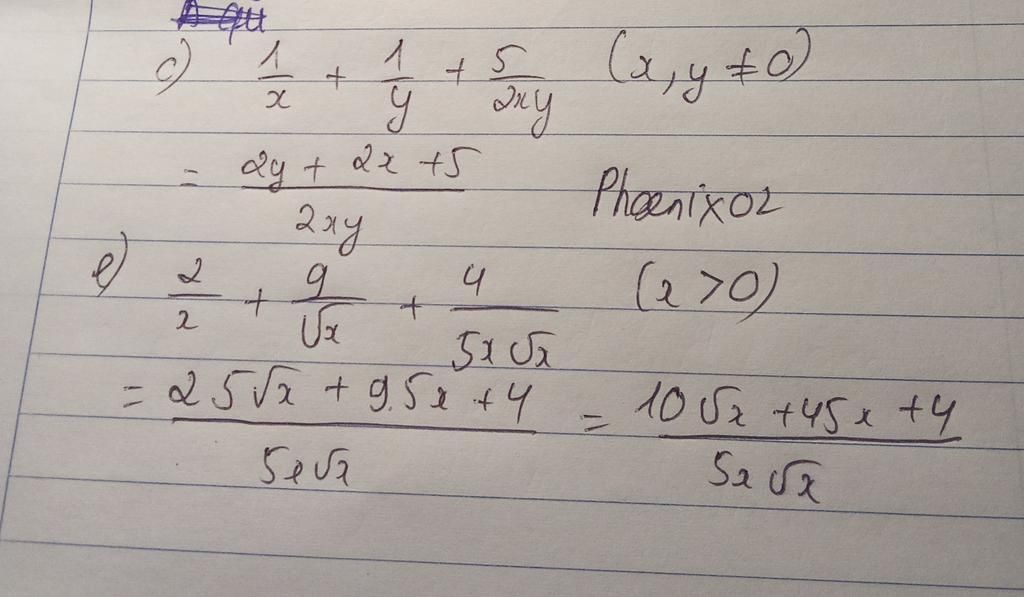 c) 1/x + 1/y + 5/2xy (x, y ≠ 0)
= 2y + 2x + 5/2xy
Phoenix02
e) 2/x + 9/√x + 4/5x√x (x > 0)
= 2 5√x + 9.5x + 4/5x√x = 10√x + 45x + 4/5x√x